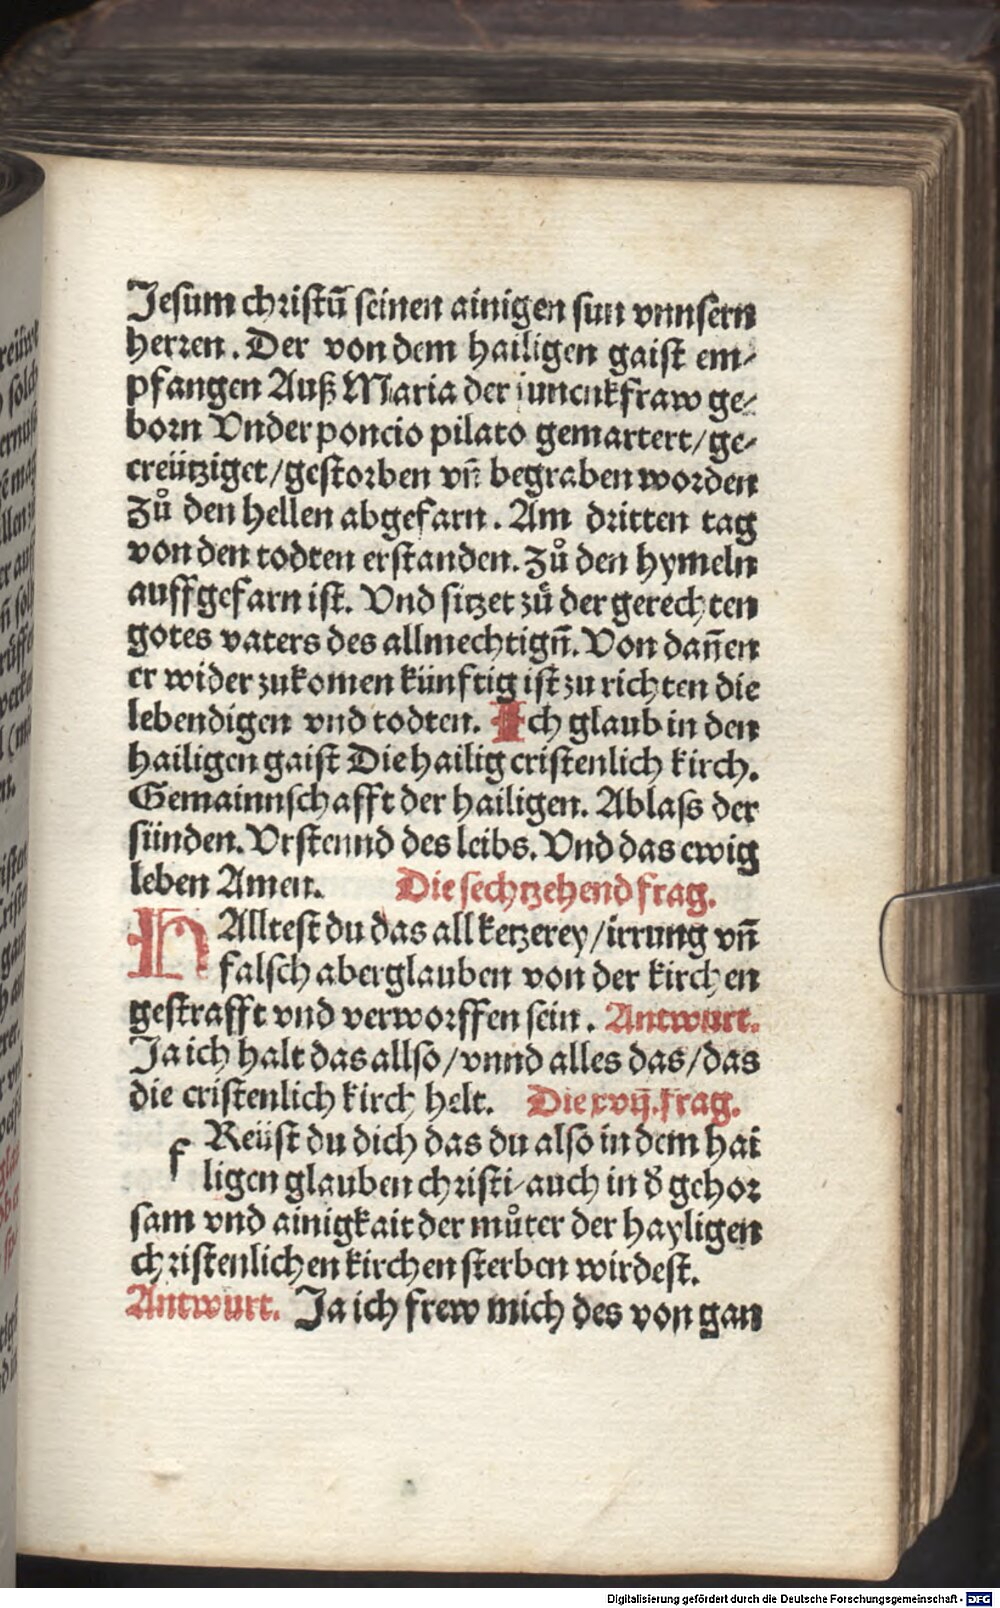 Jesum christū seinen ainigen sun vnnsern
herren. Der von dem hailigen gaist em-
pfangen Auß Maria der iuncnkfraw ge-
born Vnder poncio pilato gemartert/ge-
creütziget/gestorben vn̄ begraben worden
Zů den hellen abgefarn. Am dritten tag
von den todten erstanden. Zů den hymeln
auffgefarn ist. Vnd sitzet zů der gerechten
gotes vaters des allmechtign̄. Von dan̄en
er wider zukomen künftig ist zu richten die
lebendigen vnd todten. Ich glaub in den
hailigen gaist Die hailig cristenlich kirch.
Gemainnschafft der hailigen. Ablass der
sünden. Vrstennd des leibs. Vnd das ewig
leben Amen. Die sechtzehend frag.
HAlltest du das all ketzerey/irrung vn̄
falsch aberglauben von der kirchen
gestrafft vnd verworffen sein. Antwurt.
Ja ich halt das allso/vnnd alles das/das
die cristenlich kirch helt. Die xvij. frag.
f Reüst du dich das du also in dem hai
ligen glauben christi/auch in d̄ gehor
sam vnd ainigkait der můter der hayligen
christenlichen kirchen sterben wirdest.
Antwurt. Ja ich frew mich des von gan
Digitalisierung gefördert durch die Deutsche Forschungsgemeinschaft - DFG